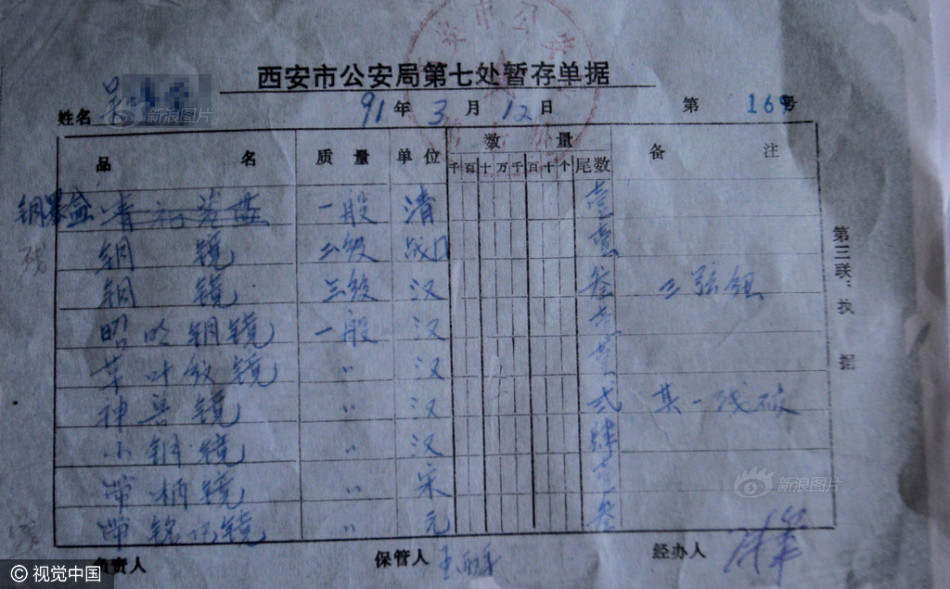 西安市公安局第七处暂存单据
姓名 吴 新浪图片 91年 3月 12日 第 169号
品名 质量 单位 数量 备注
千百十万千百十个 尾数
铜墨盒 一般 清 壹
残 铜镜 二级 战国 壹
铜镜 三级 汉 叁 三弦钮
昭明铜镜 一般 汉 壹
草叶纹镜 〃 汉 壹
神兽镜 〃 汉 弍 其一残破
小铜镜 〃 汉 肆
带柄镜 〃 宋 壹
带铭记镜 〃 元 叁
第三联:执据
新浪图片
负责人 保管人 经办人
© 视觉中国